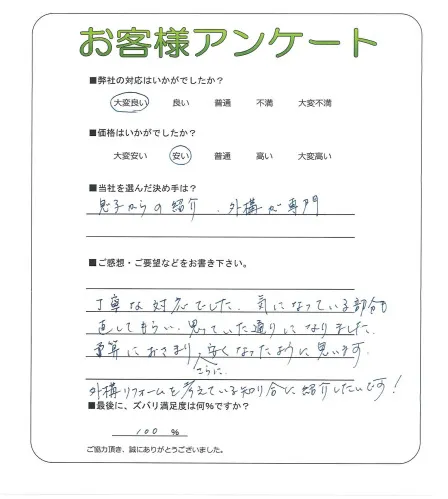 お客様アンケート
■弊社の対応はいかがでしたか？
大変良い 良い 普通 不満 大変不満
■価格はいかがでしたか？
大変安い 安い 普通 高い 大変高い
■当社を選んだ決め手は？
息子からの紹介 . 外構が専門
■ご感想・ご要望などをお書き下さい。
丁寧な対応でした. 気になっている部分も
直してもらい. 思っていた通りになりました.
予算におさまり, 安くなったように思います.
さらに.
外構リフォームを考えている知り合に紹介したいです！
■最後に、ズバリ満足度は何％ですか？
100 %
ご協力頂き、誠にありがとうございました。